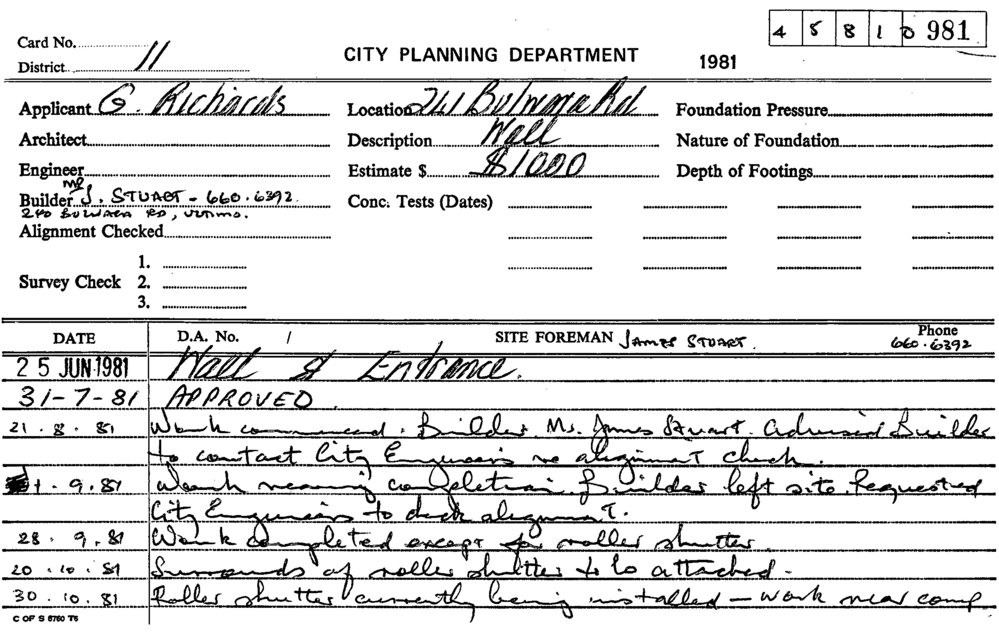 4 5 8 1 0 981
Card No.
District 11
CITY PLANNING DEPARTMENT 1981
Applicant G. Richards Location 241 Bulwara Rd Foundation Pressure
Architect Description Wall Nature of Foundation
Engineer Estimate $ $1000 Depth of Footings
Builder Mr J. STUART - 660.6392 Conc. Tests (Dates)
240 BULWARA RD, ULTIMO.
Alignment Checked
Survey Check
1.
2.
3.
DATE D.A. No. / SITE FOREMAN JAMES STUART. Phone 660.6392
25 JUN 1981 Wall & Entrance.
31-7-81 APPROVED.
21.8.81 Work commenced. Builder. Mr. James Stuart. Advised Builder
to contact City Engineers re alignment check.
1.9.81 Work nearing completion. Builder left site. Requested
City Engineers to check alignment.
28.9.81 Work completed except for roller shutter.
20.10.81 Surrounds of roller shutter to be attached.
30.10.81 Roller shutter currently being installed - work near comp
C OF S 5760 T6